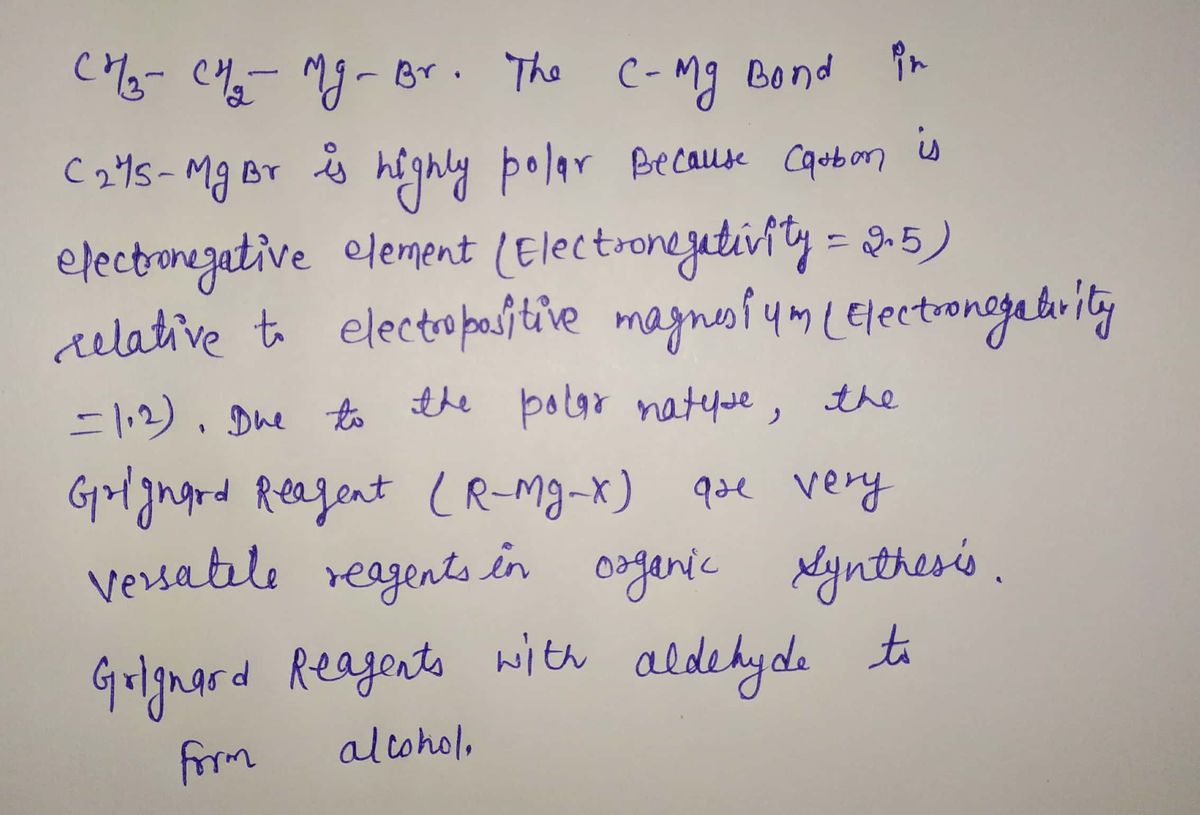 CH₃- CH₂- Mg-Br. The C-Mg Bond in
C₂H5-MgBr is highly polar Because Carbon is
electronegative element (Electronegativity = 2.5)
relative to electropositive magnesium (Electronegativity
=1.2). Due to the polar nature, the
Grignard Reagent (R-Mg-X) are very
versatile reagents in organic synthesis.
Grignard Reagents with aldehyde to
form alcohol.